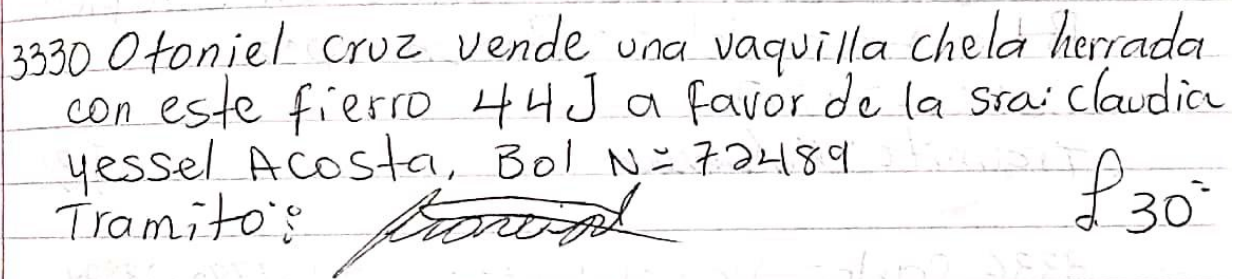 3330 Otoniel cruz vende una vaquilla chela herrada
con este fierro 44J a favor de la sra: claudia
yessel Acosta, Bol N= 72489
Tramito: £30=